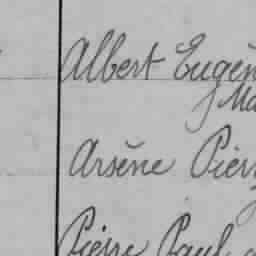 Albert Eugèn
Ma
Arsène Pier
Pierre Paul